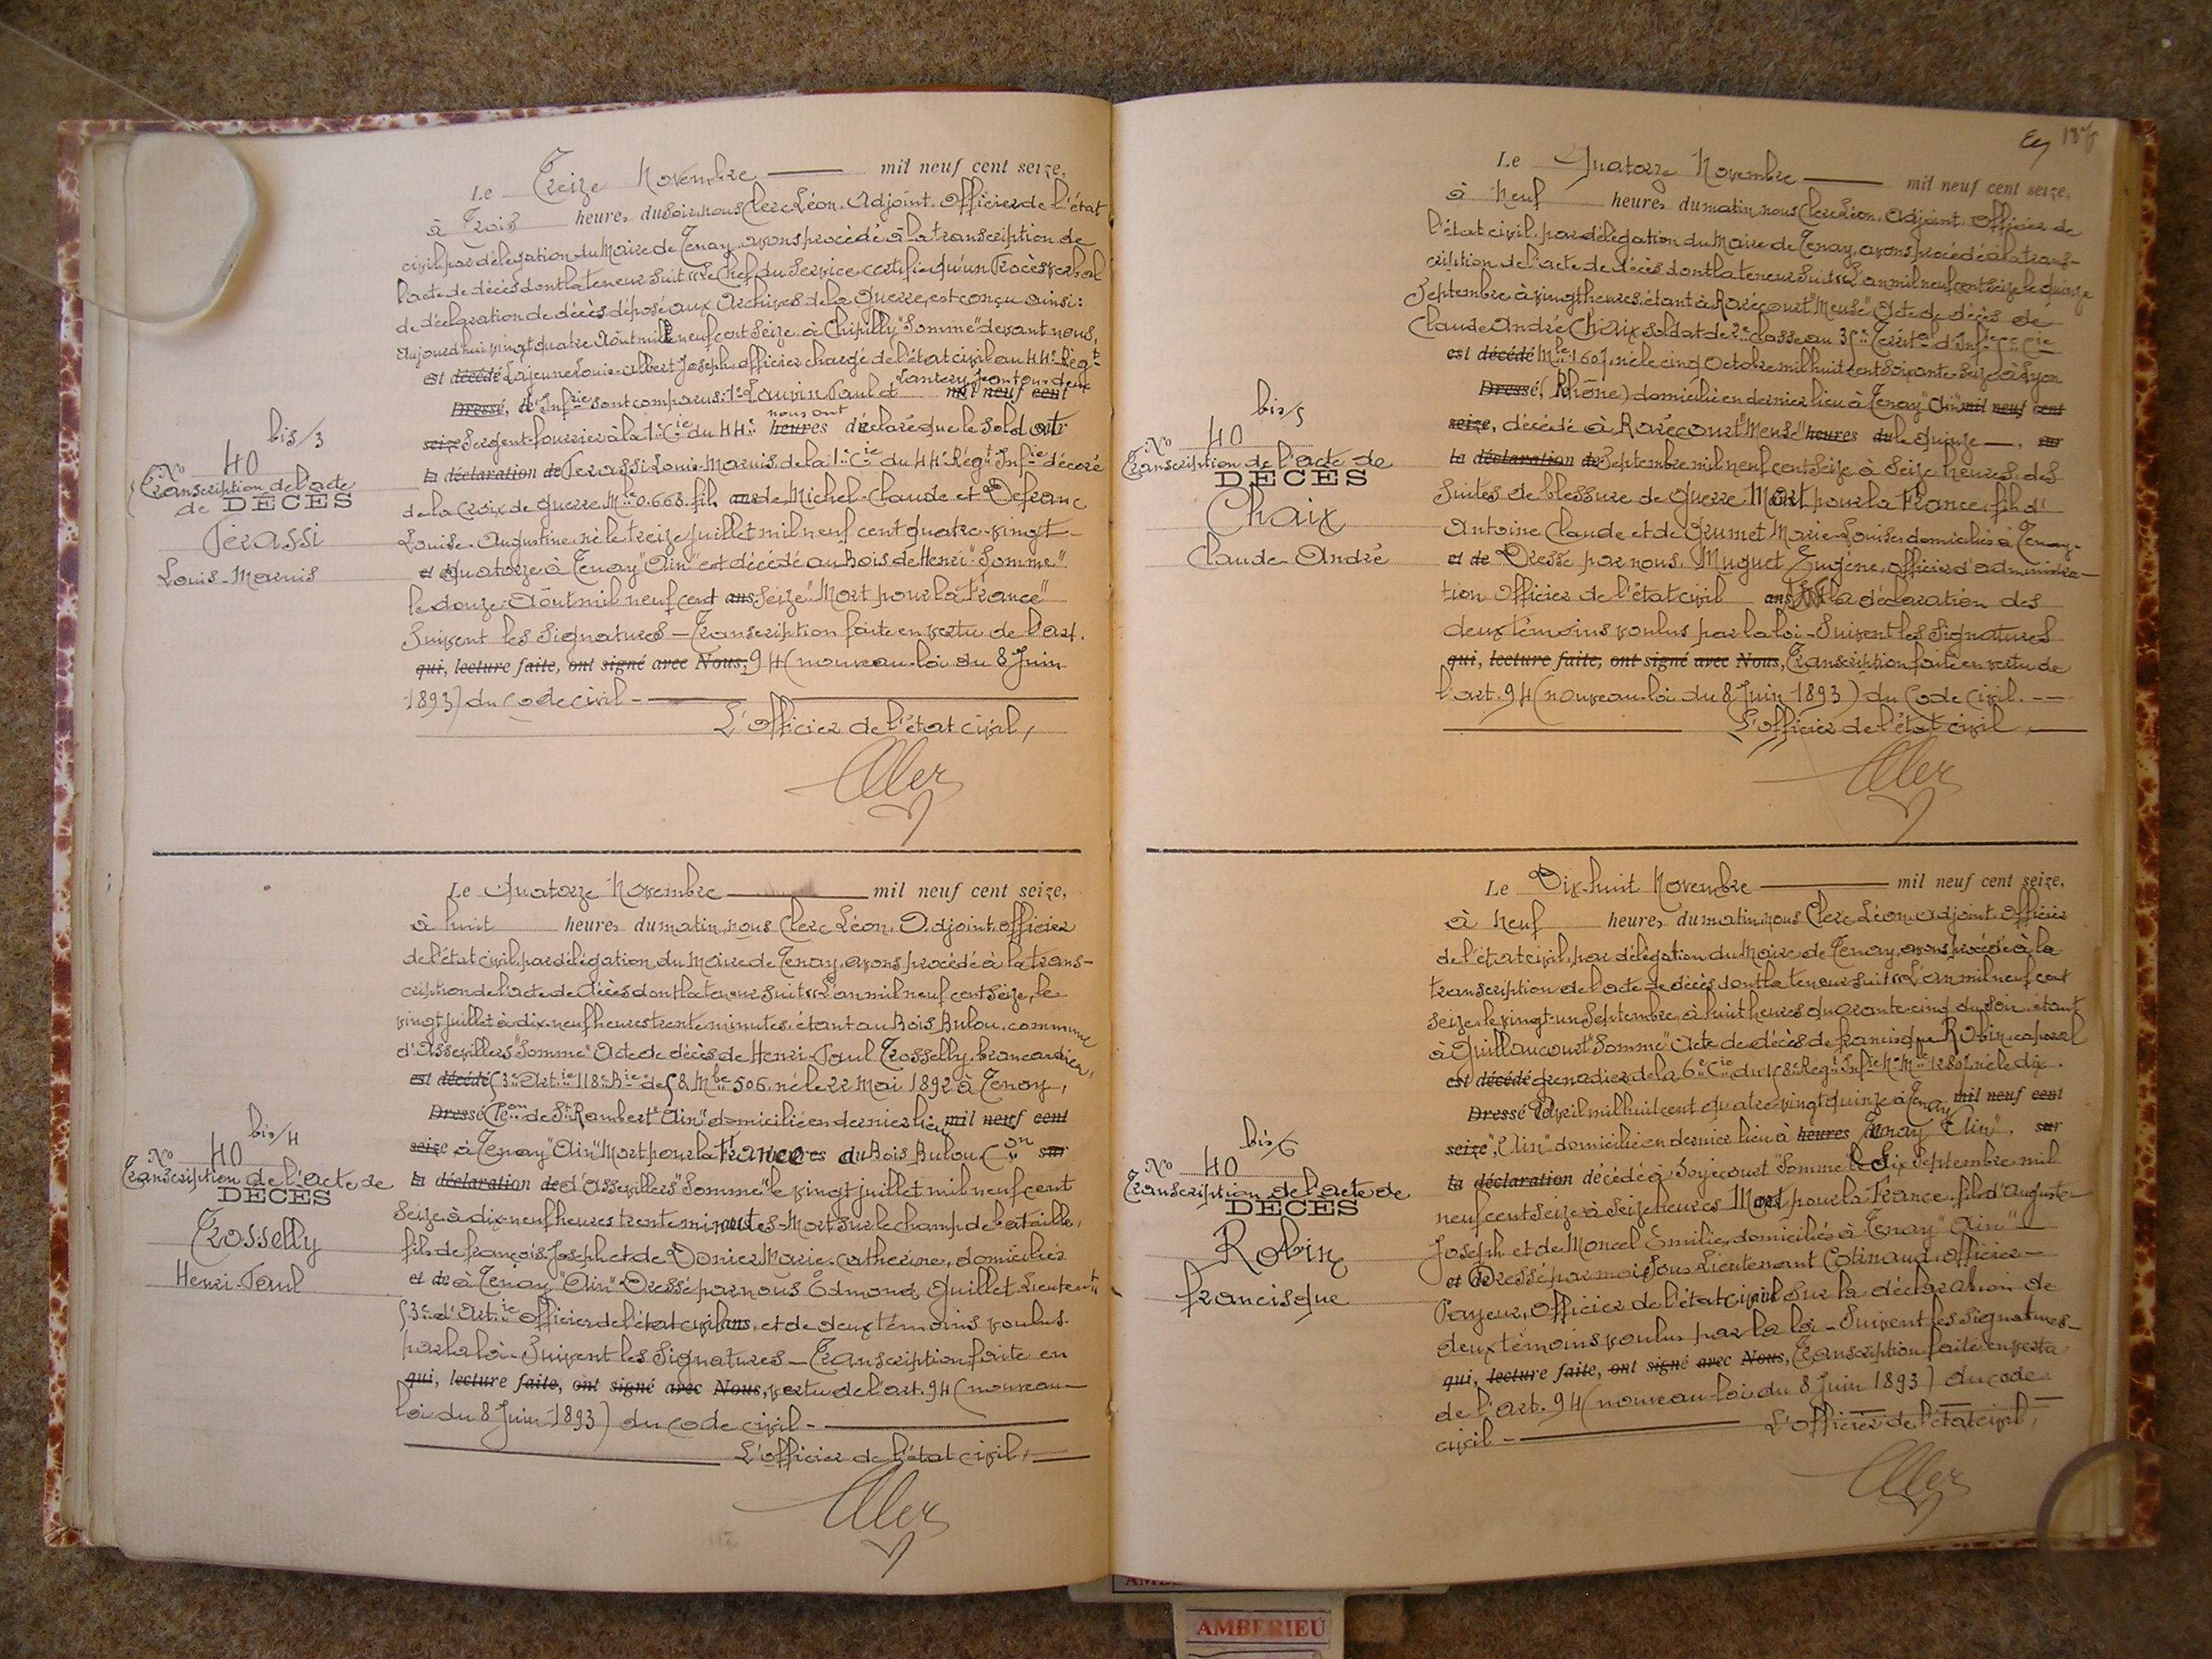 Le Treize Novembre mil neuf cent seize,
à Trois heures du soir nous Clerc Léon, Adjoint, Officier de l'état
civil par délégation du Maire de Tenay, avons procédé à la transcription de
l'acte de décès dont la teneur suit "Le Chef du Service certifie qu'un Procès verbal
de déclaration de décès déposé aux Archives de la Guerre, est conçu ainsi:
Aujourd'hui vingt quatre Août mil neuf cent seize à Chipilly "Somme" devant nous,
est décédé Lajeune Louis-Albert Joseph, officier chargé de l'état civil au 44e Régt
Dressé, d'Infie sont comparus: 1° Lauvin Paul et mil neuf cent
seize Sergent-fourrier à la 1e Cie du 44e heures nous ont déclaré que le soldat
la déclaration de Perassi Louis-Marius de la 1e Cie du 44e Régt Infie décoré
de la Croix de guerre Mle 0.668. fils ans de Michel-Claude et Defranc
Louise-Augustine, né le treize juillet mil neuf cent quatre-vingt-
et quatorze à Tenay "Ain" est décédé au Bois de Henri "Somme"
le douze Août mil neuf cent ans seize "Mort pour la France"
Suivent les signatures — Transcription faite en vertu de l'art.
qui, lecture faite, ont signé avec Nous; 94 (nouveau-loi du 8 Juin
1893) du code civil -
L'officier de l'état civil,
No 40 bis/3
Transcription de l'acte
de DÉCÈS
Pérassi
Louis-Marius
Le Quatorze Novembre mil neuf cent seize,
à huit heures du matin, nous Clerc Léon, Adjoint, officier
de l'état civil, par délégation du Maire de Tenay, avons procédé à la trans-
cription de l'acte de décès dont la teneur suit "L'an mil neuf cent seize, le
vingt juillet à dix-neuf heures trente minutes, étant au Bois Bulou, commune
d'Assevillers "Somme" Acte de décès de Henri-Paul Trosselly, brancardier,
est décédé 53e Artie 118e Bie de 58. Mle 506. né le 22 Mai 1892 à Tenay,
Dressé Con de St Rambert "Ain" domicilié en dernier lieu mil neuf cent
seize à Tenay "Ain" Mort pour la France heures du Bois Bulou Con sur
la déclaration de d'Assevillers "Somme" le vingt juillet mil neuf cent
seize à dix-neuf heures trente minutes - Mort sur le champ de bataille,
fils de François Joseph et de Donier Marie-Catherine, domiciliés
et de à Tenay "Ain" Dressé par nous Edmond Guillet Lieutent
53e d'Artie officier de l'état civil ans, et de deux témoins voulus
par la loi - Suivent les signatures — Transcription faite en
qui, lecture faite, ont signé avec Nous, vertu de l'art. 94 (nouveau-
loi du 8 Juin 1893) du code civil -
L'officier de l'état civil,
No 40 bis/4
Transcription de l'acte de
DÉCÈS
Trosselly
Henri-Paul
Le Quatorze Novembre mil neuf cent seize,
à Neuf heures du matin, nous Clerc Léon, Adjoint, Officier de
l'état civil, par délégation du Maire de Tenay, avons procédé à la trans-
cription de l'acte de décès dont la teneur suit "L'an mil neuf cent seize le quinze
Septembre à vingt heures, étant à Rarécourt "Meuse" Acte de décès de
Claude André Chaix soldat de 2e classe au Territal d'Infie
est décédé Mle 1607. né le cinq Octobre mil huit cent soixante-seize à Lyon
Dressé, (Rhône) domicilié en dernier lieu à Tenay "Ain" mil neuf cent
seize, décédé à Rarécourt "Meuse" heures du le quinze —. sur
la déclaration de Septembre mil neuf cent seize à seize heures, des
suites de blessure de guerre. Mort pour la France, fils d'
Antoine Claude et de Grumet Marie-Louise, domiciliés à Tenay-
et de Dressé par nous, Muguet Eugène, officier d'administra-
tion Officier de l'état civil ans la déclaration des
deux témoins voulus par la loi - Suivent les signatures
qui, lecture faite, ont signé avec Nous, Transcription faite en vertu de
l'art. 94 (nouveau-loi du 8 Juin 1893) du Code civil. —
L'officier de l'état civil
No 40 bis/5
Transcription de l'acte de
DÉCÈS
Chaix
Claude-André
Le Dix-huit Novembre mil neuf cent seize,
à Neuf heures du matin, nous Clerc Léon, adjoint, officier
de l'état civil, par délégation du Maire de Tenay, avons procédé à la
transcription de l'acte de décès dont la teneur suit "L'an mil neuf cent
seize, le vingt-un Septembre, à huit heures quarante-cinq du soir, étant
à Guillaucourt "Somme" Acte de décès de Francisque Robin, caporal
est décédé grenadier de la 6e Cie du 158e Régt Infie Mle 12801 né le dix.
Dressé Avril mil huit cent quatre-vingt quinze à Tenay mil neuf cent
seize, "Ain" domicilié en dernier lieu à heures Tenay "Ain", sur
la déclaration décédé à Soyécourt "Somme" le Six Septembre mil
neuf cent seize à seize heures Mort pour la France, fils d'Auguste-
Joseph et de Moncel Emilie, domiciliés à Tenay "Ain"
et de Dressé par moi Sous Lieutenant Cotinaud, officier-
Payeur, Officier de l'état civil sur la déclaration de
deux témoins voulus par la loi - Suivent les signatures-
qui, lecture faite, ont signé avec Nous, Transcription faite en vertu
de l'art. 94 (nouveau-loi du 8 Juin 1893) du code
civil -
L'officier de l'état civil,
No 40 bis/6
Transcription de l'acte de
DÉCÈS
Robin
francisque
AMBERIEU